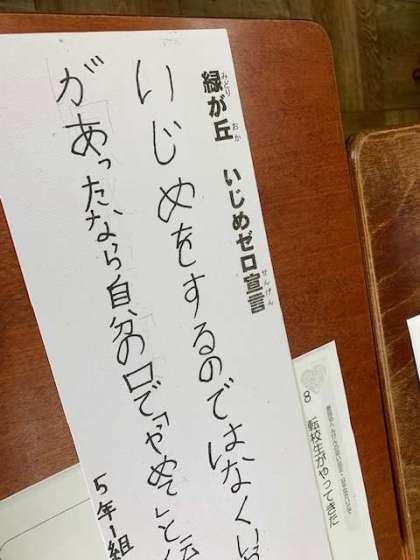 緑が丘 いじめゼロ宣言
みどり おか せんげん
いじめをするのではなく
があったなら自分の口で「やめて」と
5年1組
8 転校生がやってきた